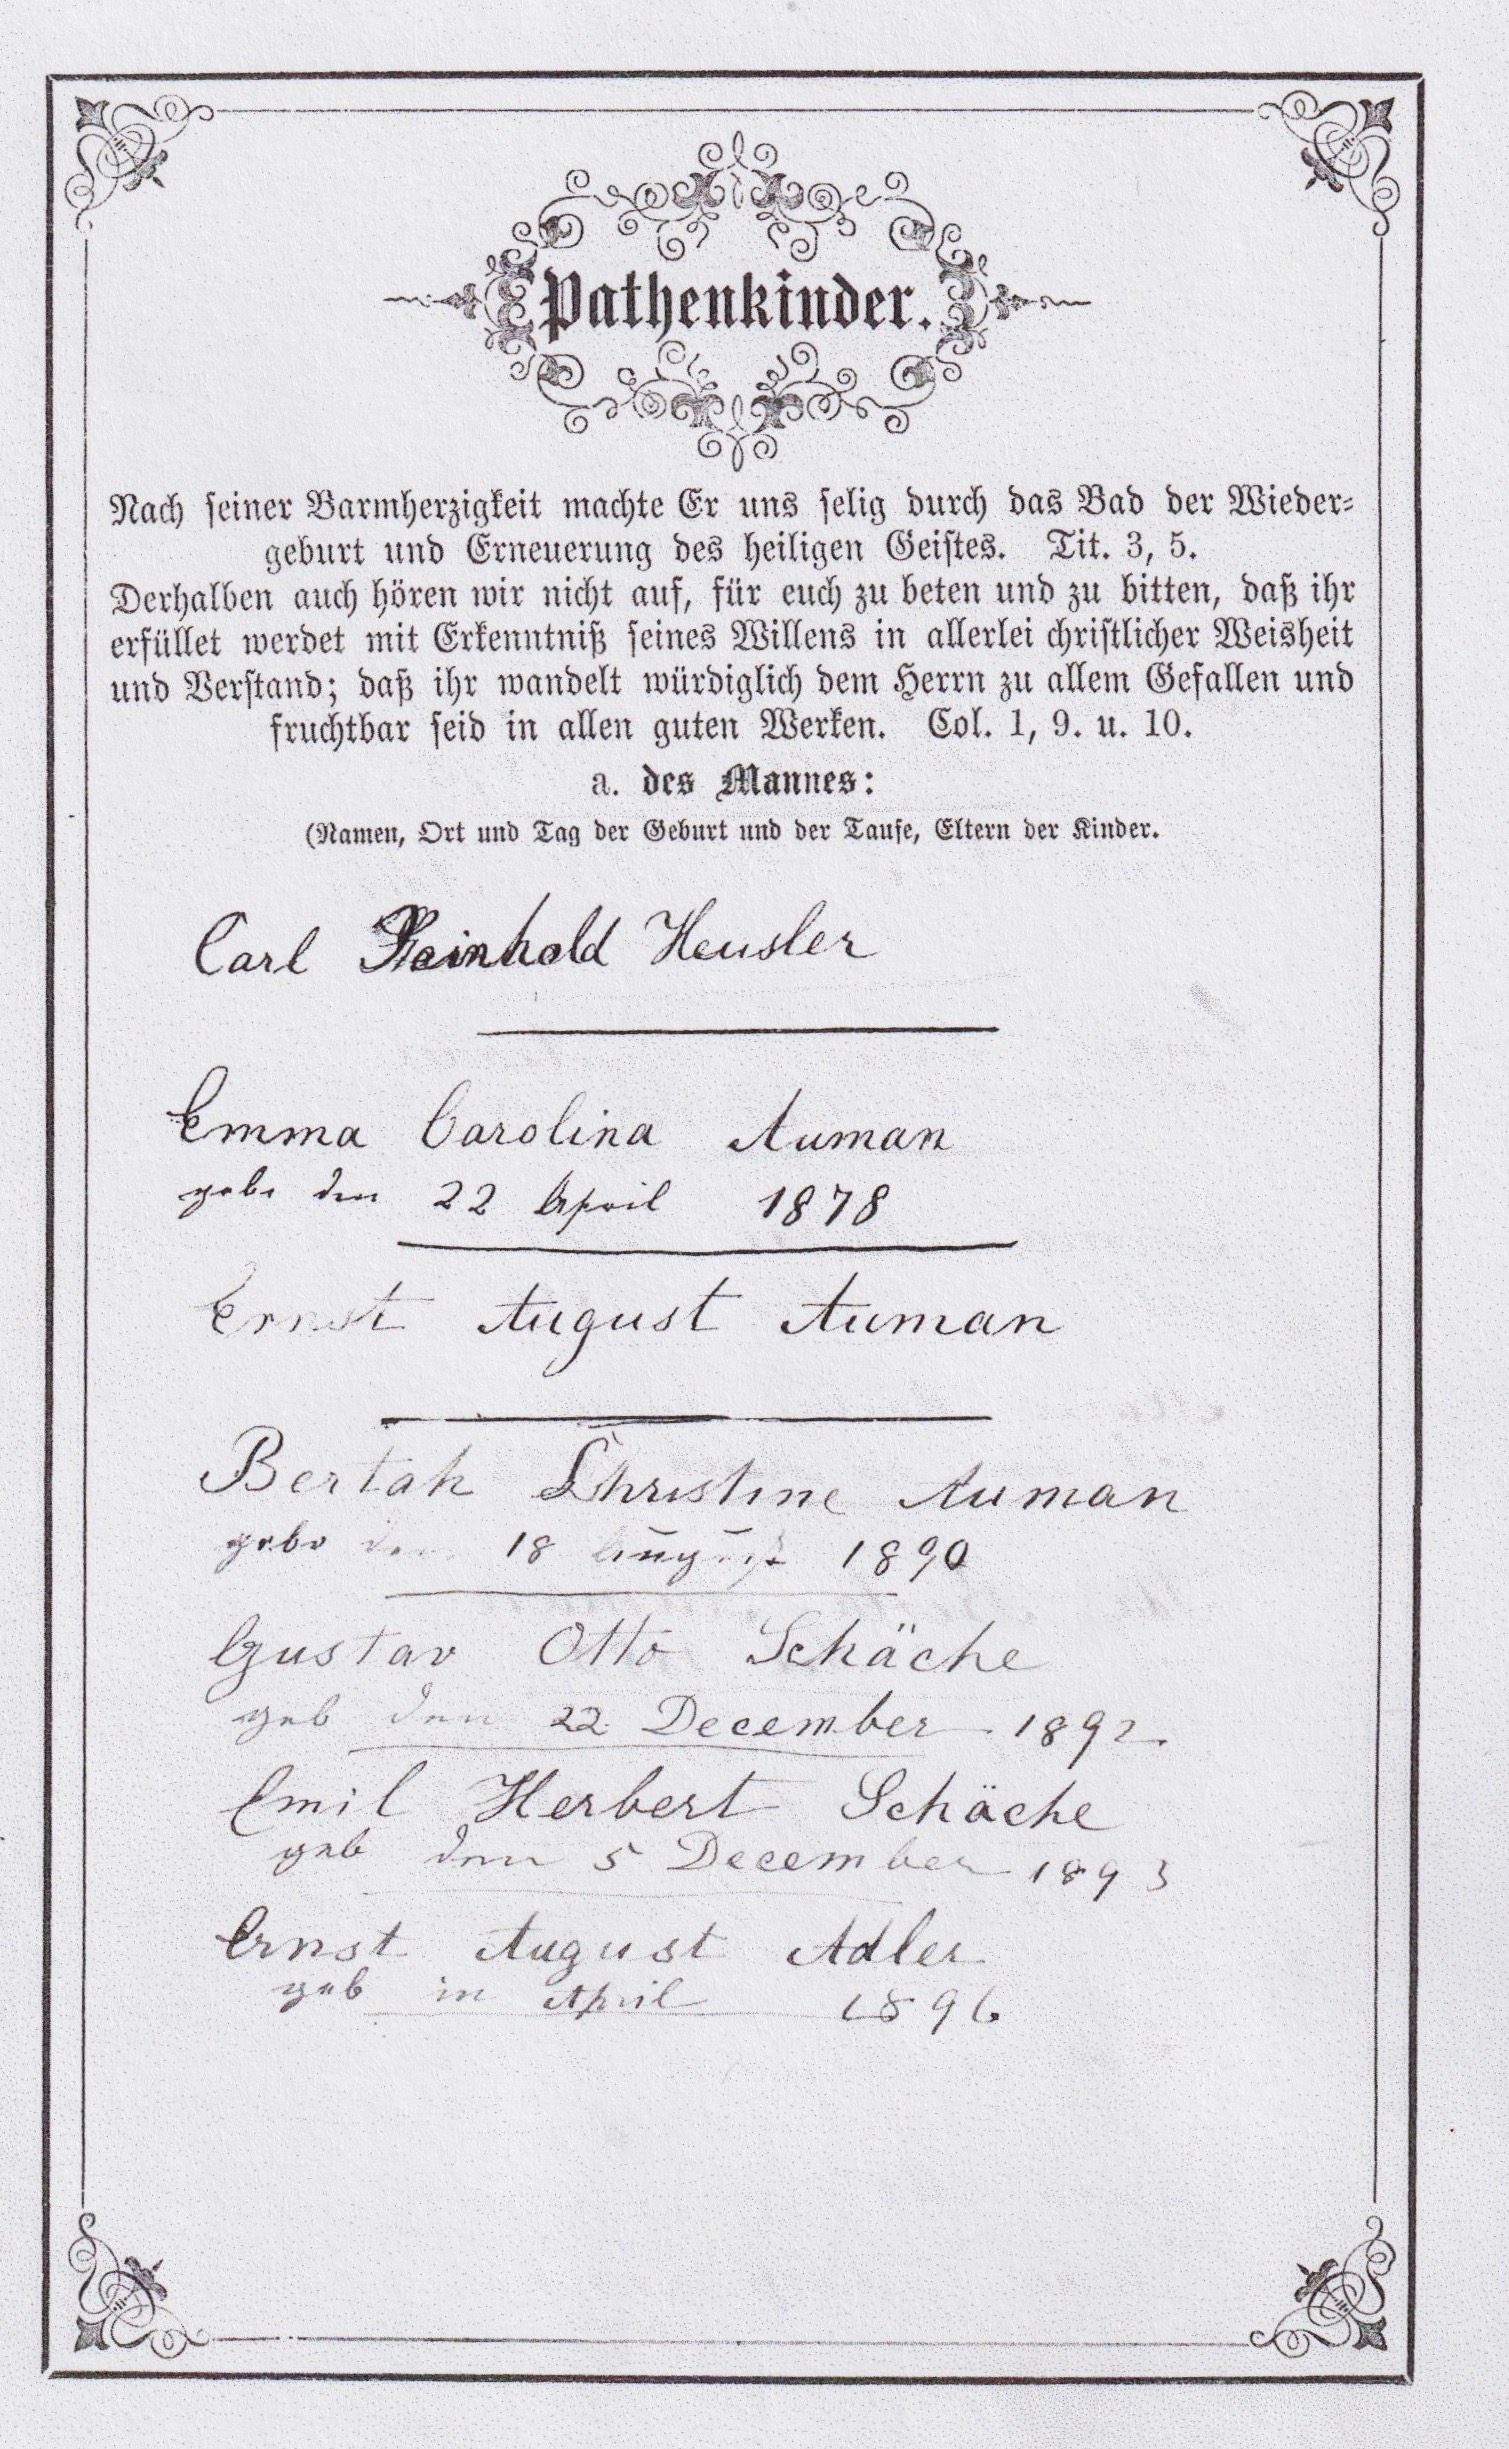 Pathenkinder.
Nach seiner Barmherzigkeit machte Er uns selig durch das Bad der Wieder-
geburt und Erneuerung des heiligen Geistes. Tit. 3, 5.
Derhalben auch hören wir nicht auf, für euch zu beten und zu bitten, daß ihr
erfüllet werdet mit Erkenntniß seines Willens in allerlei christlicher Weisheit
und Verstand; daß ihr wandelt würdiglich dem Herrn zu allem Gefallen und
fruchtbar seid in allen guten Werken. Col. 1, 9. u. 10.
a. des Mannes:
(Namen, Ort und Tag der Geburt und der Taufe, Eltern der Kinder.
Carl Reinhold Heusler
Emma Carolina Auman
gebo den 22 April 1878
Ernst August Auman
Bertah Christine Auman
gebo den 18 August 1890
Gustav Otto Schäche
geb den 22 December 1892.
Emil Herbert Schäche
geb den 5 December 1893
Ernst August Adler
geb in April 1896